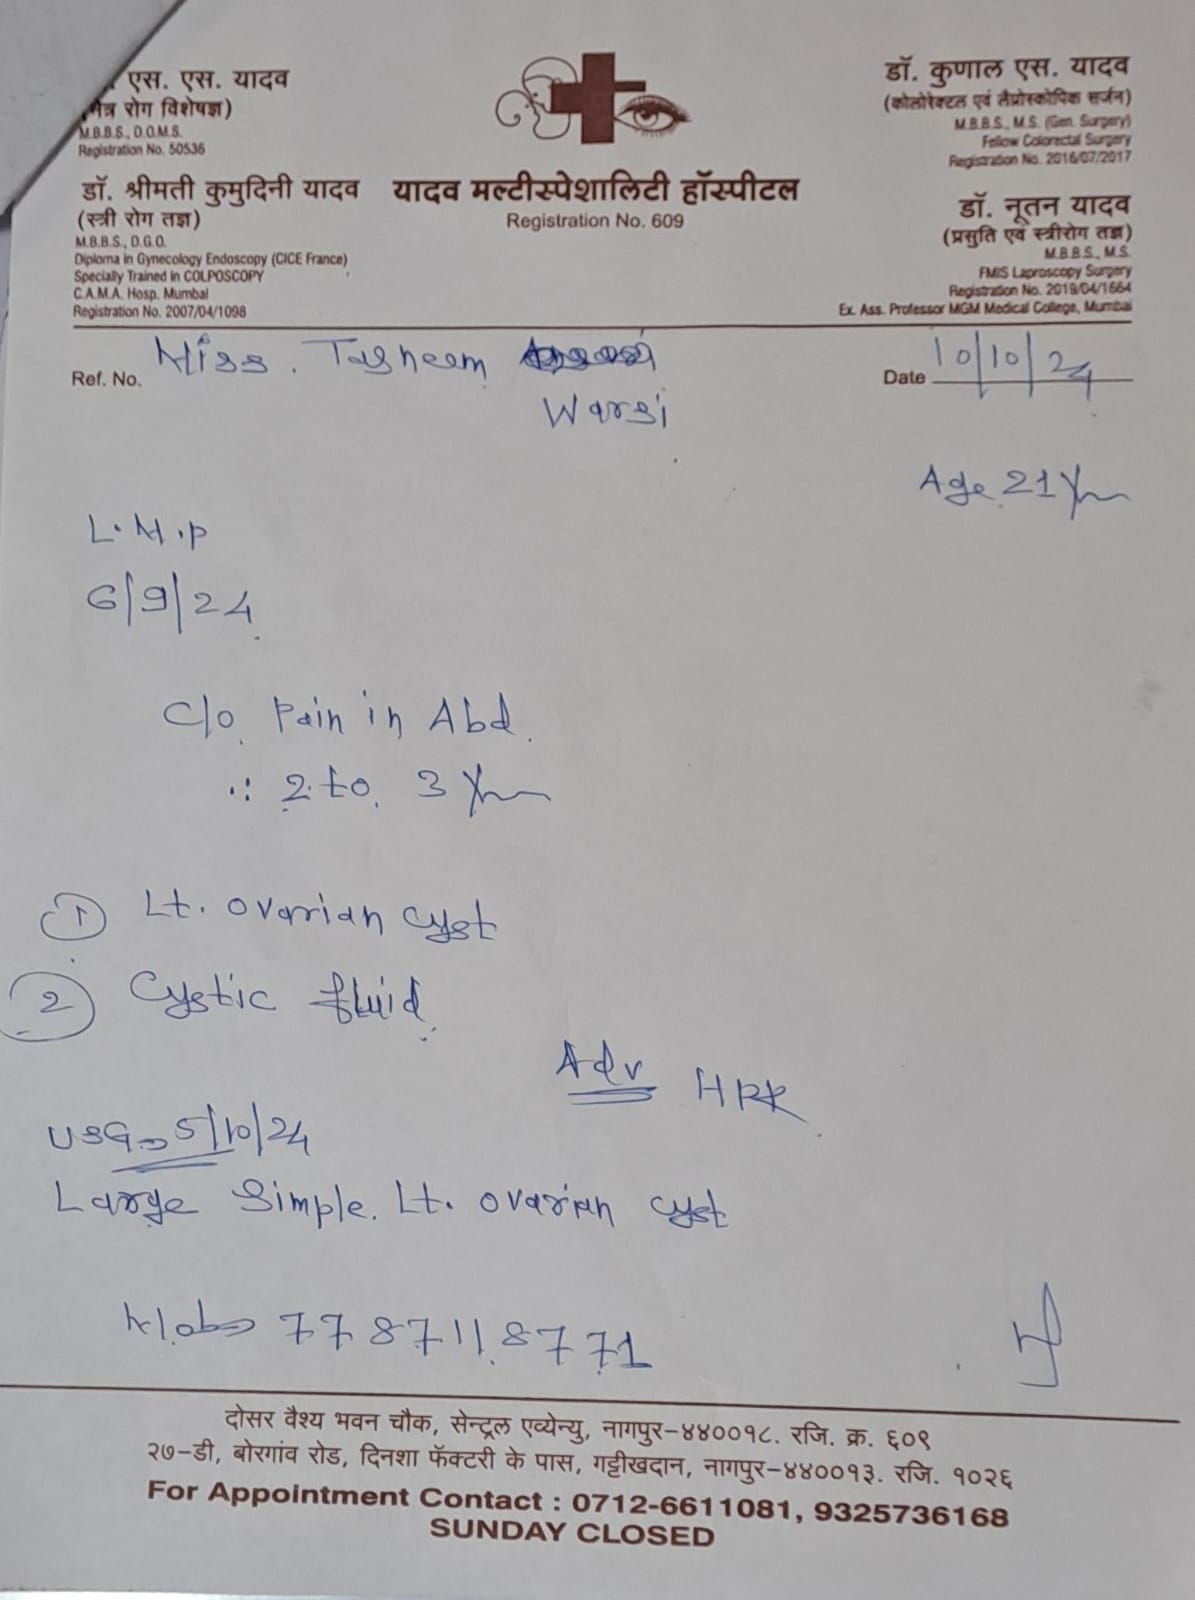 एस. एस. यादव
(नेत्र रोग विशेषज्ञ)
M.B.B.S., D.O.M.S.
Registration No. 50536
डॉ. श्रीमती कुमुदिनी यादव
(स्त्री रोग तज्ञ)
M.B.B.S., D.G.O.
Diploma in Gynecology Endoscopy (CICE France)
Specially Trained in COLPOSCOPY
C.A.M.A. Hosp. Mumbai
Registration No. 2007/04/1098
यादव मल्टीस्पेशालिटी हॉस्पीटल
Registration No. 609
डॉ. कुणाल एस. यादव
(कोलोरेक्टल एवं लैप्रोस्कोपिक सर्जन)
M.B.B.S., M.S. (Gen. Surgery)
Fellow Colorectal Surgery
Registration No. 2016/07/2017
डॉ. नूतन यादव
(प्रसुति एवं स्त्रीरोग तज्ञ)
M.B.B.S., M.S.
FMIS Laproscopy Surgery
Registration No. 2019/04/1664
Ex. Ass. Professor MGM Medical College, Mumbai
Ref. No. Miss. Tasneem
Warsi
Date 10/10/24
Age 21 Yrs
L.M.P
6/9/24
C/o Pain in Abd.
2 to 3 Yrs
① Lt. ovarian cyst
② Cystic fluid
Adv
USG 5/10/24
Large Simple Lt. ovarian cyst
Mob 7787118771
दोसर वैश्य भवन चौक, सेन्ट्रल एव्येन्यु, नागपुर-४४००१८. रजि. क्र. ६०९
२७-डी, बोरगांव रोड, दिनशा फॅक्टरी के पास, गट्टीखदान, नागपुर-४४००१३. रजि. १०२६
For Appointment Contact : 0712-6611081, 9325736168
SUNDAY CLOSED